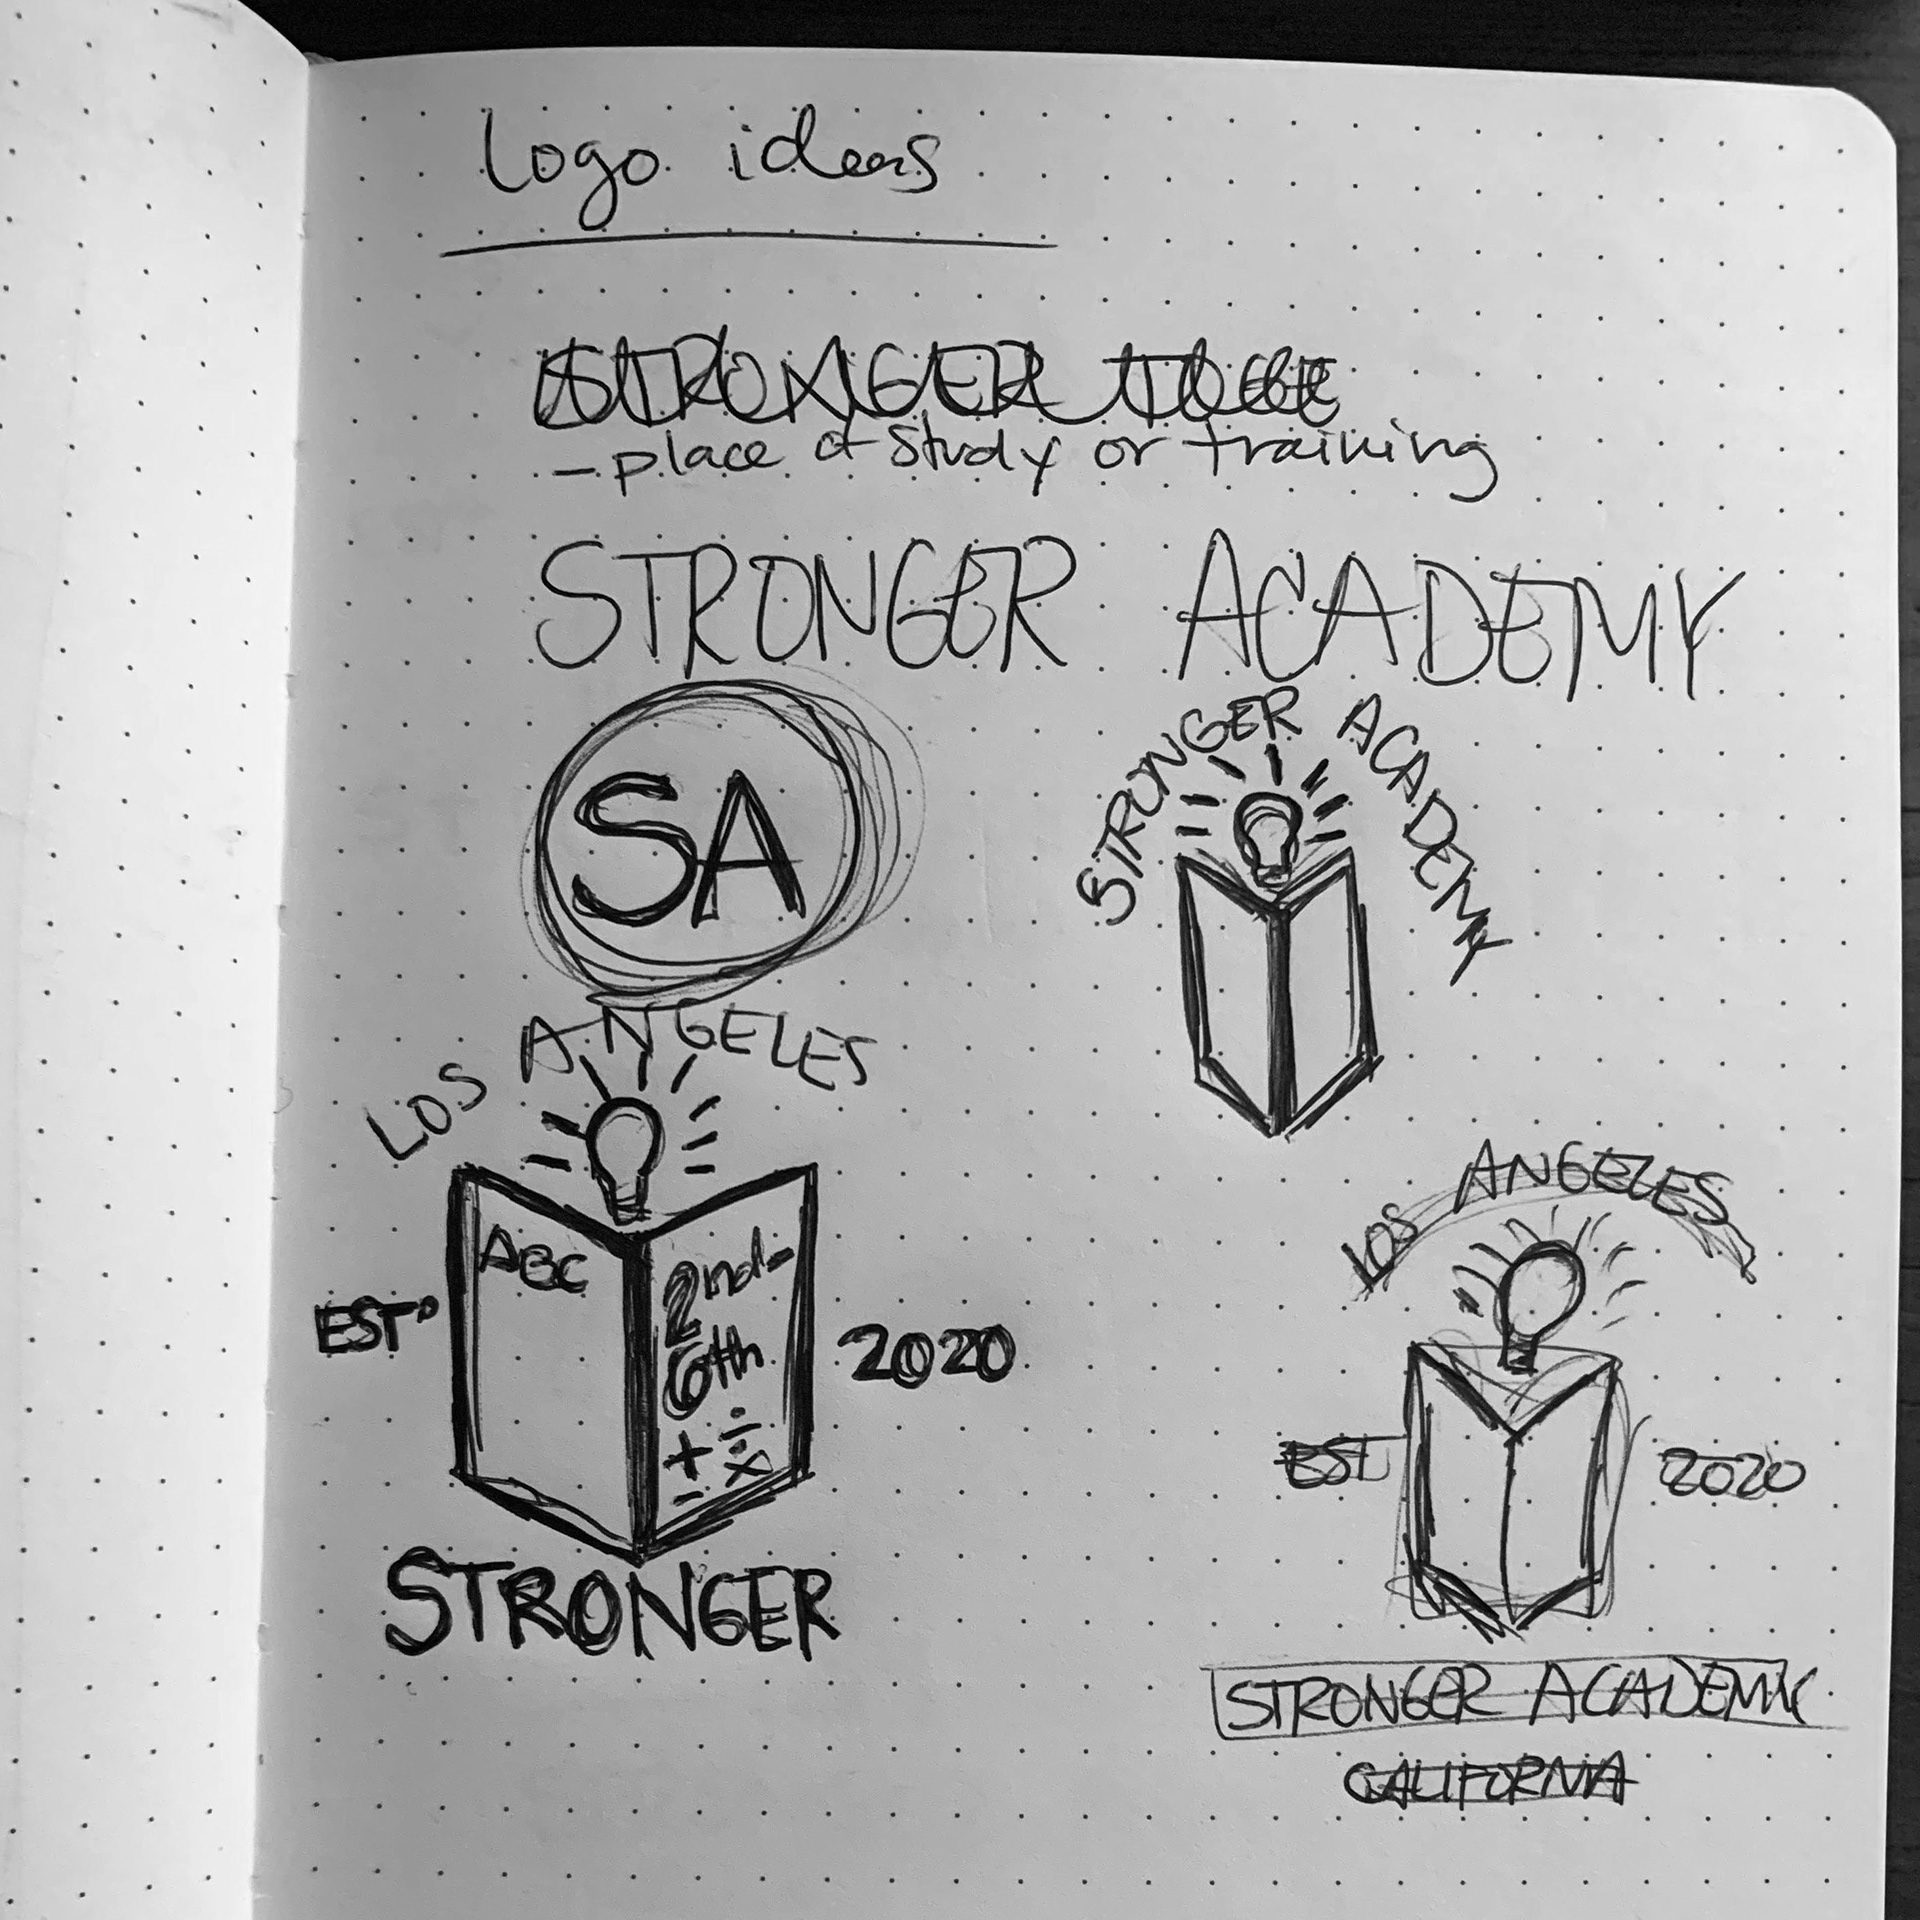 Logo ideas
STRONGER
- place of study or training
STRONGER ACADEMY
SA
STRONGER ACADEMY
LOS ANGELES
ABC
2nd-
6th
+ ÷
- x
EST'D
2020
STRONGER
LOS ANGELES
EST
2020
STRONGER ACADEMY
CALIFORNIA